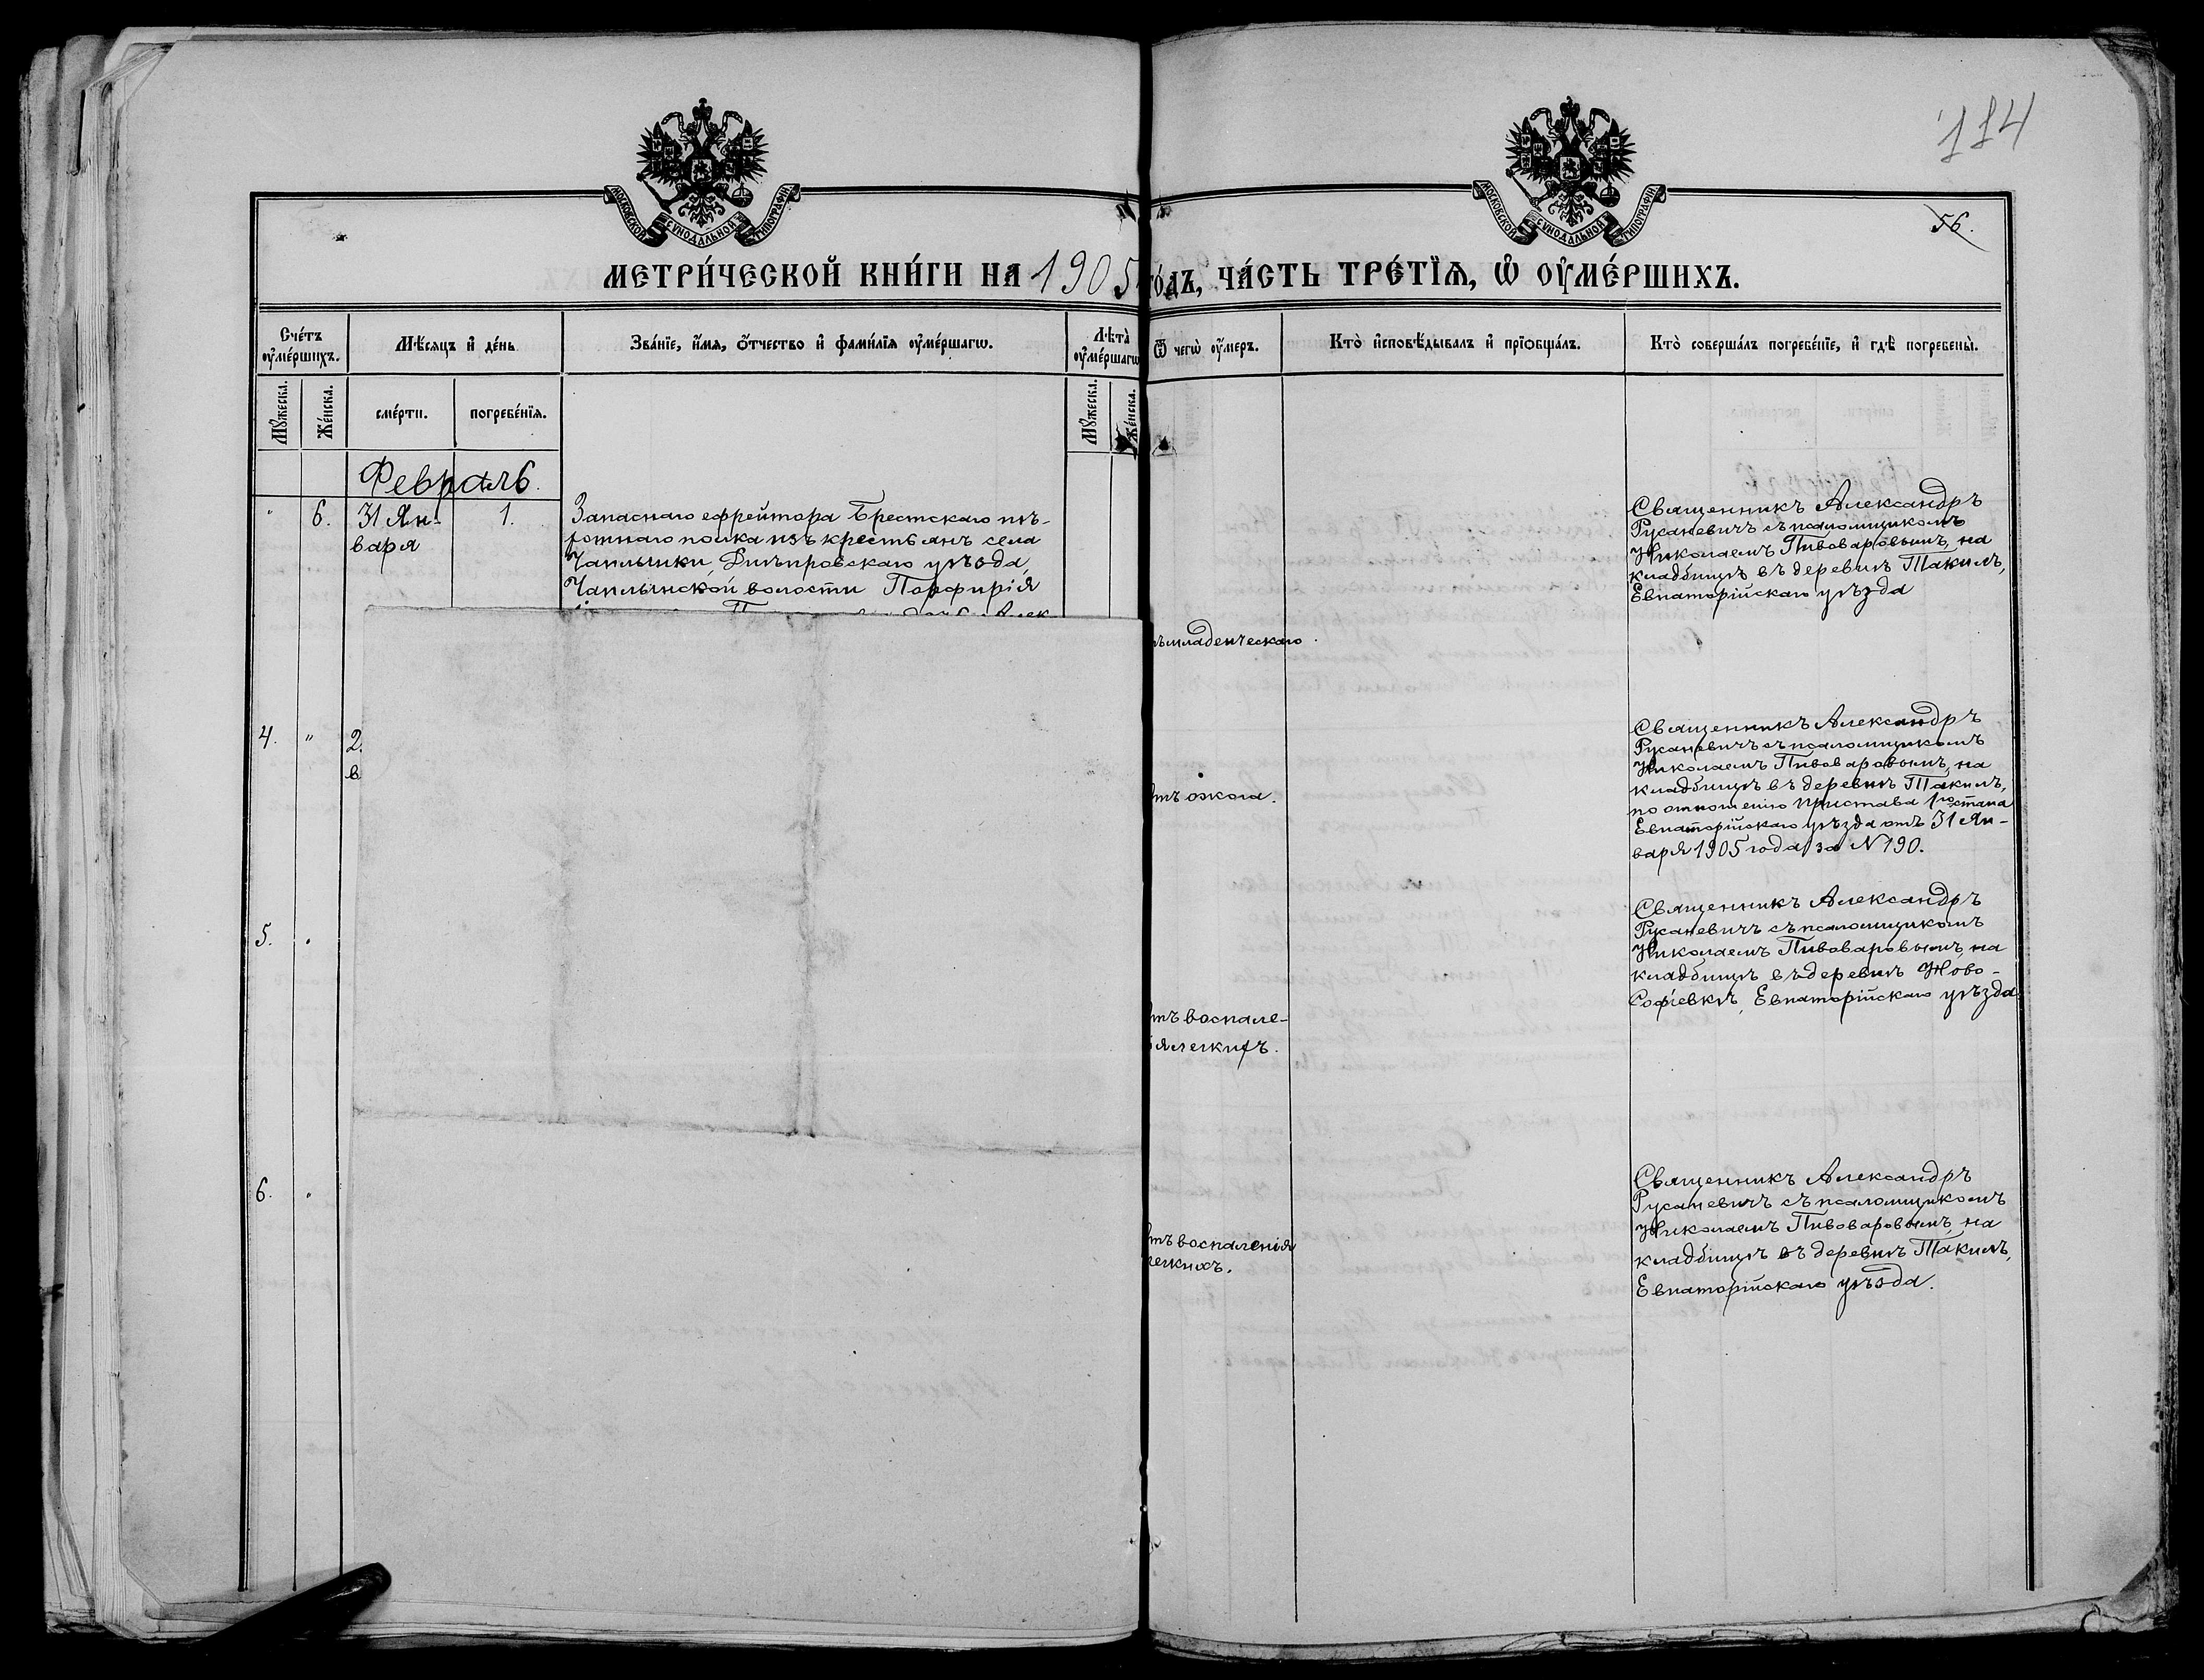 114
56.
МОСКОВСКОЙ СѴНОДАЛЬНОЙ ТИПОГРАФІИ
МОСКОВСКОЙ СѴНОДАЛЬНОЙ ТИПОГРАФІИ
МЕТРИ́ЧЕСКОЙ КНИ́ГИ НА 1905 го́дъ, ЧА́СТЬ ТРЕ́ТЇѦ, Ѽ ОУ҆МЕ́РШИХЪ.
Сче́тъ оу҆ме́ршихъ.
Мѣ́сѧцъ и҆ де́нь
Зва́нїе, и҆́мѧ, ѻ҆́тчество и҆ фамилі́ѧ оу҆ме́ршагѡ.
Лѣ̀та оу҆ме́ршагѡ
Ѿ чегѡ̀ оу҆́меръ.
Кто̀ и҆сповѣ́дывалъ и҆ прїѡбща́лъ.
Кто̀ соверша́лъ погребе́нїе, и҆ гдѣ̀ погребены̀.
Мꙋжеска.
Же́нска.
сме́рти.
погребе́нїѧ.
Мꙋжеска.
Же́нска.
Февраль.
" 6. 31 Ян-
варя
1.
Запаснаго ефрейтора Брестскаго пѣ-
хотнаго полка изъ крестьянъ села
Чаплынки, Днѣпровскаго уѣзда,
Чаплынской волости Порфирія
дочь Алек
младенческаго
Священникъ Александръ
Русаневичъ съ псаломщикомъ
Николаемъ Пивоваровымъ, на
кладбищѣ въ деревнѣ Такилъ,
Евпаторійскаго уѣзда
4. " 2
в
тъ ожога.
Священникъ Александръ
Русаневичъ съ псаломщикомъ
Николаемъ Пивоваровымъ, на
кладбищѣ въ деревнѣ Такилъ,
по отношенію пристава 1го стана
Евпаторійскаго уѣзда отъ 31 Ян-
варя 1905 года за N 190.
5. "
тъ воспале-
ія легкихъ.
Священникъ Александръ
Русаневичъ съ псаломщикомъ
Николаемъ Пивоваровымъ, на
кладбищѣ въ деревнѣ Ново-
Софіевкѣ, Евпаторійскаго уѣзда.
6. "
тъ воспаленія
легкихъ.
Священникъ Александръ
Русаневичъ съ псаломщикомъ
Николаемъ Пивоваровымъ, на
кладбищѣ въ деревнѣ Такилъ,
Евпаторійскаго уѣзда.